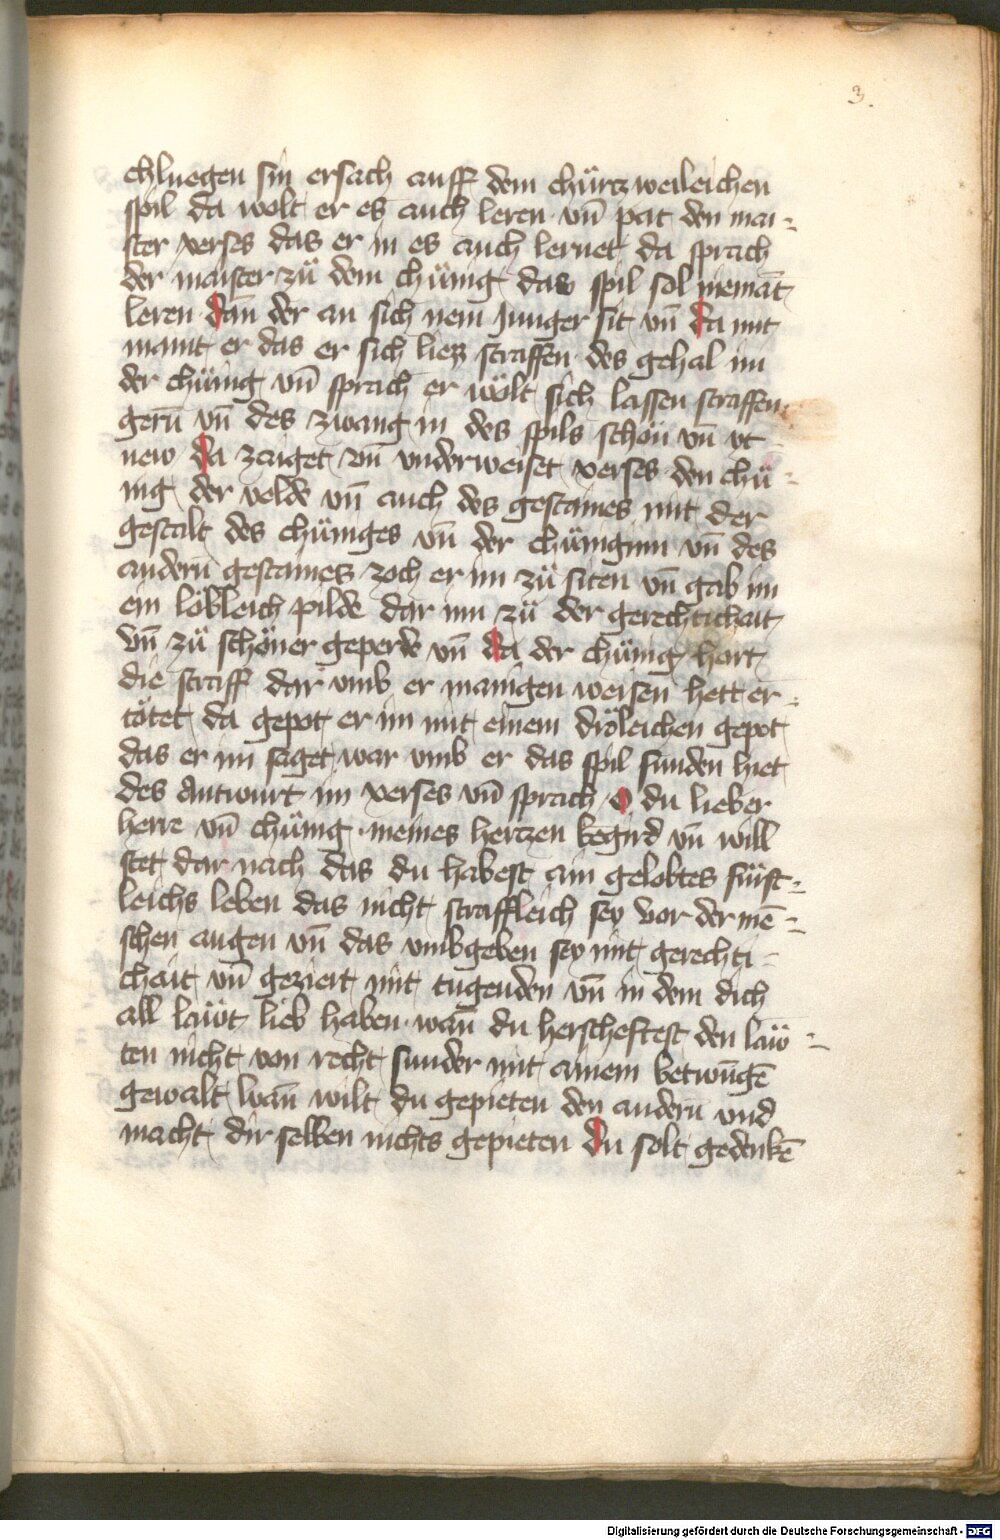 3.
chluegen sin ersach auff dem chürtzweileichen
spil da wolt er es auch leren vn̄ pat den mai-
ster xerses das er in es auch lernet da sprach
der maister zü dem chünig das spil sol niemāt
leren dān der an sich nem Junger sit vn̄ da mit
maint er das er sich liezz straffen des gehal im
der chünig vn̄ sprach er wölt sich lassen straffen
gern̄ vn̄ des zwang in des spils schön vn̄ vt
new da zaiget vn̄ vnderweiset xerses den chü-
nig der velde vn̄ auch des gestaines mit der
gestalt des chüniges vn̄ der chünginn vn̄ des
andern̄ gestaines zoch er im zü siten vn̄ gab im
ein löbleich pilde dar inn zü der gerechtichait
Vn̄ zü schöner geperde vn̄ da der chünig hort
die straff dar vmb er manigen weisen hett er-
tötet da gepot er im mit einem dröleichen gepot
das er im saget war vmb er das spil funden hiet
des Antwurt im xerses vn̄ sprach O du lieber
herre vn̄ chünig meines hertzen begird vn̄ will
stet dar nach das du habest ain gelobtes fürst-
leichs leben das nicht straffleich sey vor der mē-
schen augen vn̄ das vmbgeben sey mit gerechti-
chait vn̄ geziert mit tugenden vn̄ in dem dich
all läwt lieb haben wan̄ du herscheftest den läw-
ten nicht von recht sunder mit ainem betwūgē
gewalt wan̄ wilt du gepieten den andern̄ vnd
macht dir selben nichts gepieten du solt gedenkē
Digitalisierung gefördert durch die Deutsche Forschungsgemeinschaft - DFG